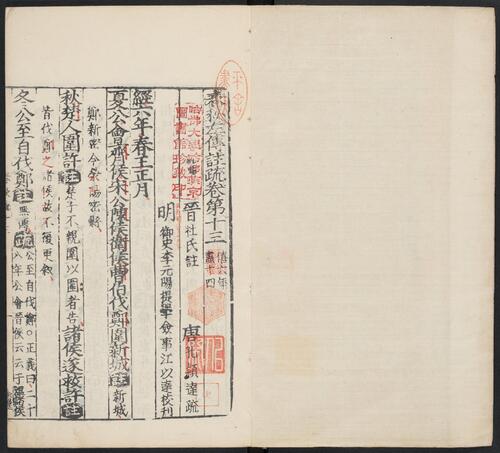 春秋左傳註疏卷第十三
僖六年
盡十四
晉杜氏註
唐孔穎達疏
明御史李元陽提學僉事江以達校刊
經六年春王正月
夏公會齊侯宋公陳侯衛侯曹伯伐鄭圍新城註新城
鄭新密今滎陽密縣
秋楚人圍許註楚子不親圍以圍者告諸侯遂救許註
皆伐鄭之諸侯故不復更敘
冬公至自伐鄭註無傳疏公至自伐鄭○正義曰二十
八年公會晉侯云云于
哈佛大學哈佛燕京
圖書館珍藏印